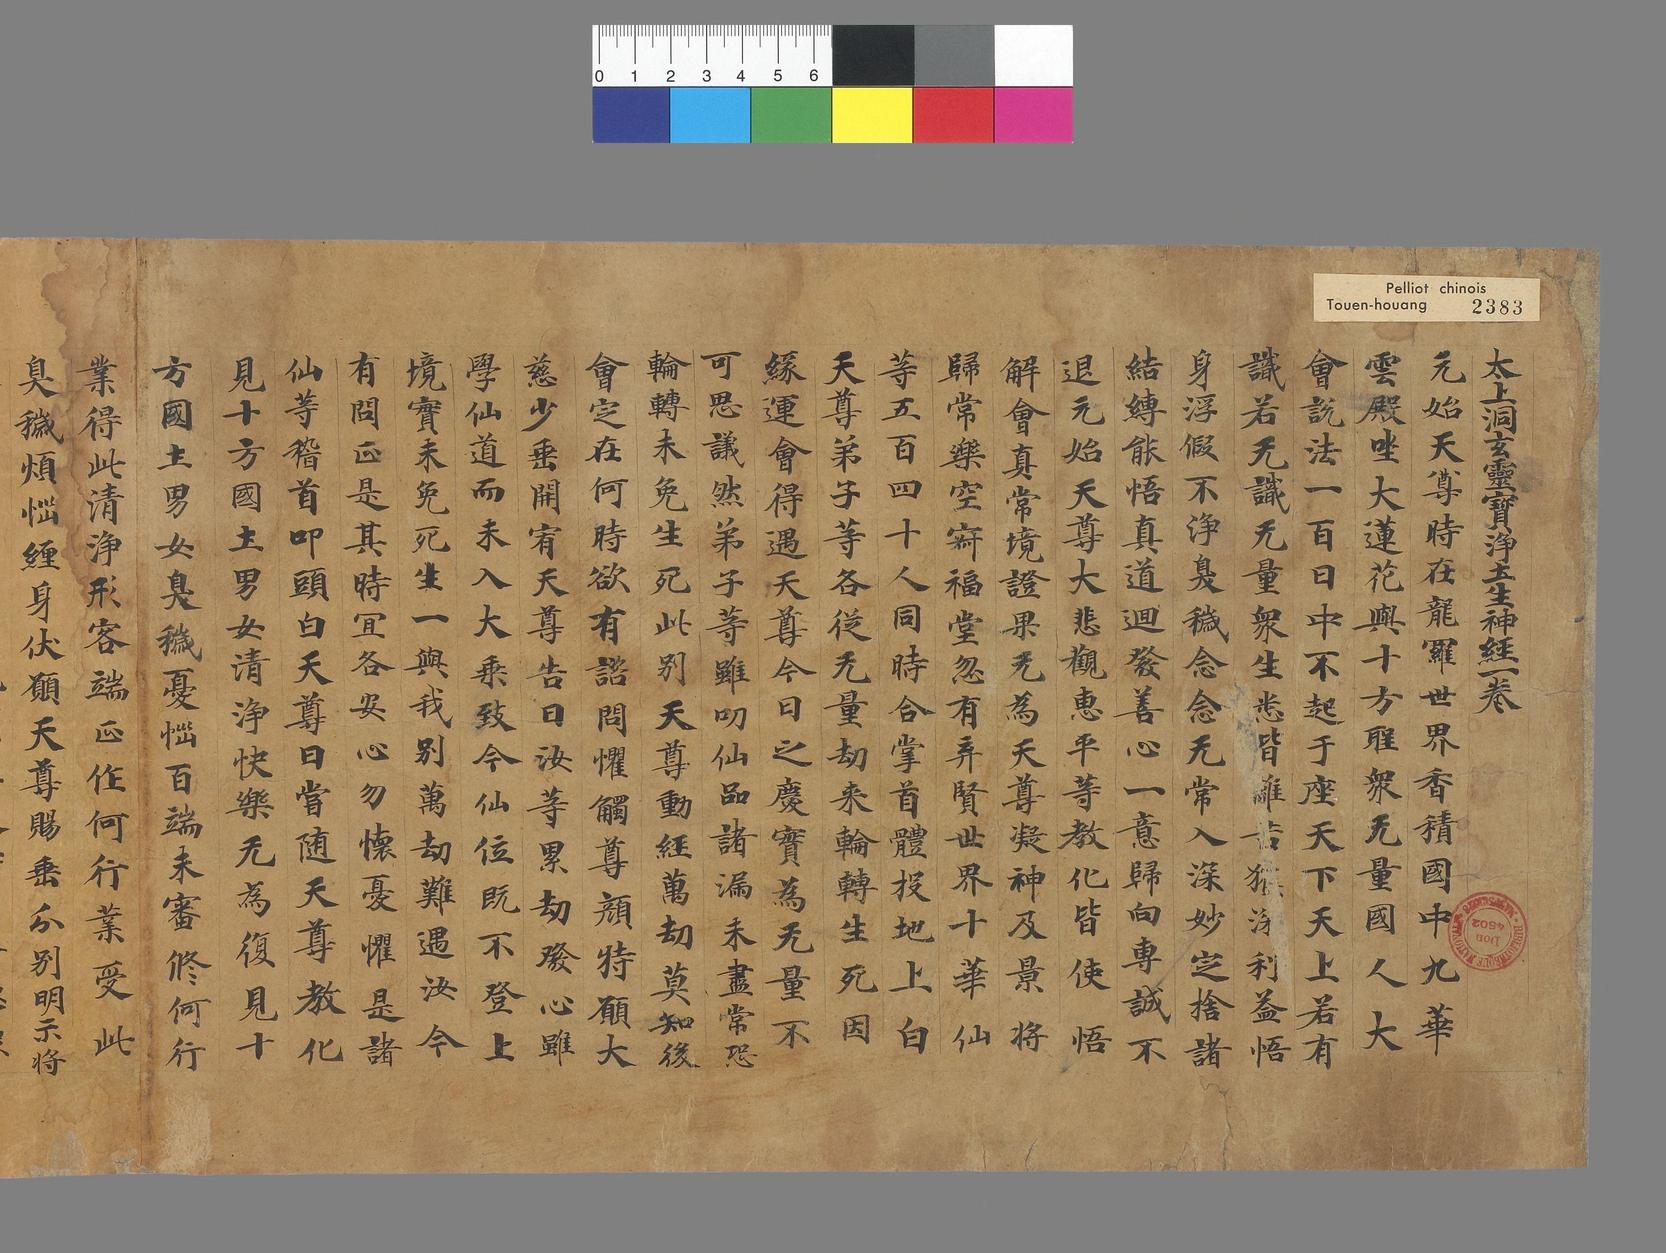 0 1 2 3 4 5 6
Pelliot chinois
Touen-houang 2383
太上洞玄靈寶淨土生神經一卷
元始天尊時在龍羅世界香積國中九華
雲殿坐大蓮花與十方聖衆无量國人大
會說法一百日中不起于座天下天上若有
識若无識无量衆生悉皆離苦 深利益悟
身浮假不淨臭穢念念无常入深妙定捨諸
結縛能悟真道迴發善心一意歸向專誠不
退元始天尊大悲觀惠平等教化皆使悟
解會真常境證果无為天尊凝神及景將
歸常樂空寂福堂忽有弃賢世界十華仙
等五百四十人同時合掌首體投地上白
天尊弟子等各從无量劫来輪轉生死因
緣運會得遇天尊今日之慶實為无量不
可思議然弟子等雖叨仙品諸漏未盡常恐
輪轉未免生死此別天尊動經萬劫莫知後
會定在何時欲有諮問懼觸尊顏特願大
慈少垂開宥天尊告曰汝等累劫發心雖
學仙道而未入大乘致今仙位既不登上
境實未免死生一與我別萬劫難遇汝今
有問正是其時冝各安心勿懷憂懼是諸
仙等稽首叩頭白天尊曰當随天尊教化
見十方國土男女清淨快樂无為復見十
方國土男女臭穢憂惱百端未審修何行
業得此清淨形容端正作何行業受此
臭穢煩惱纏身伏願天尊賜垂分別明示将